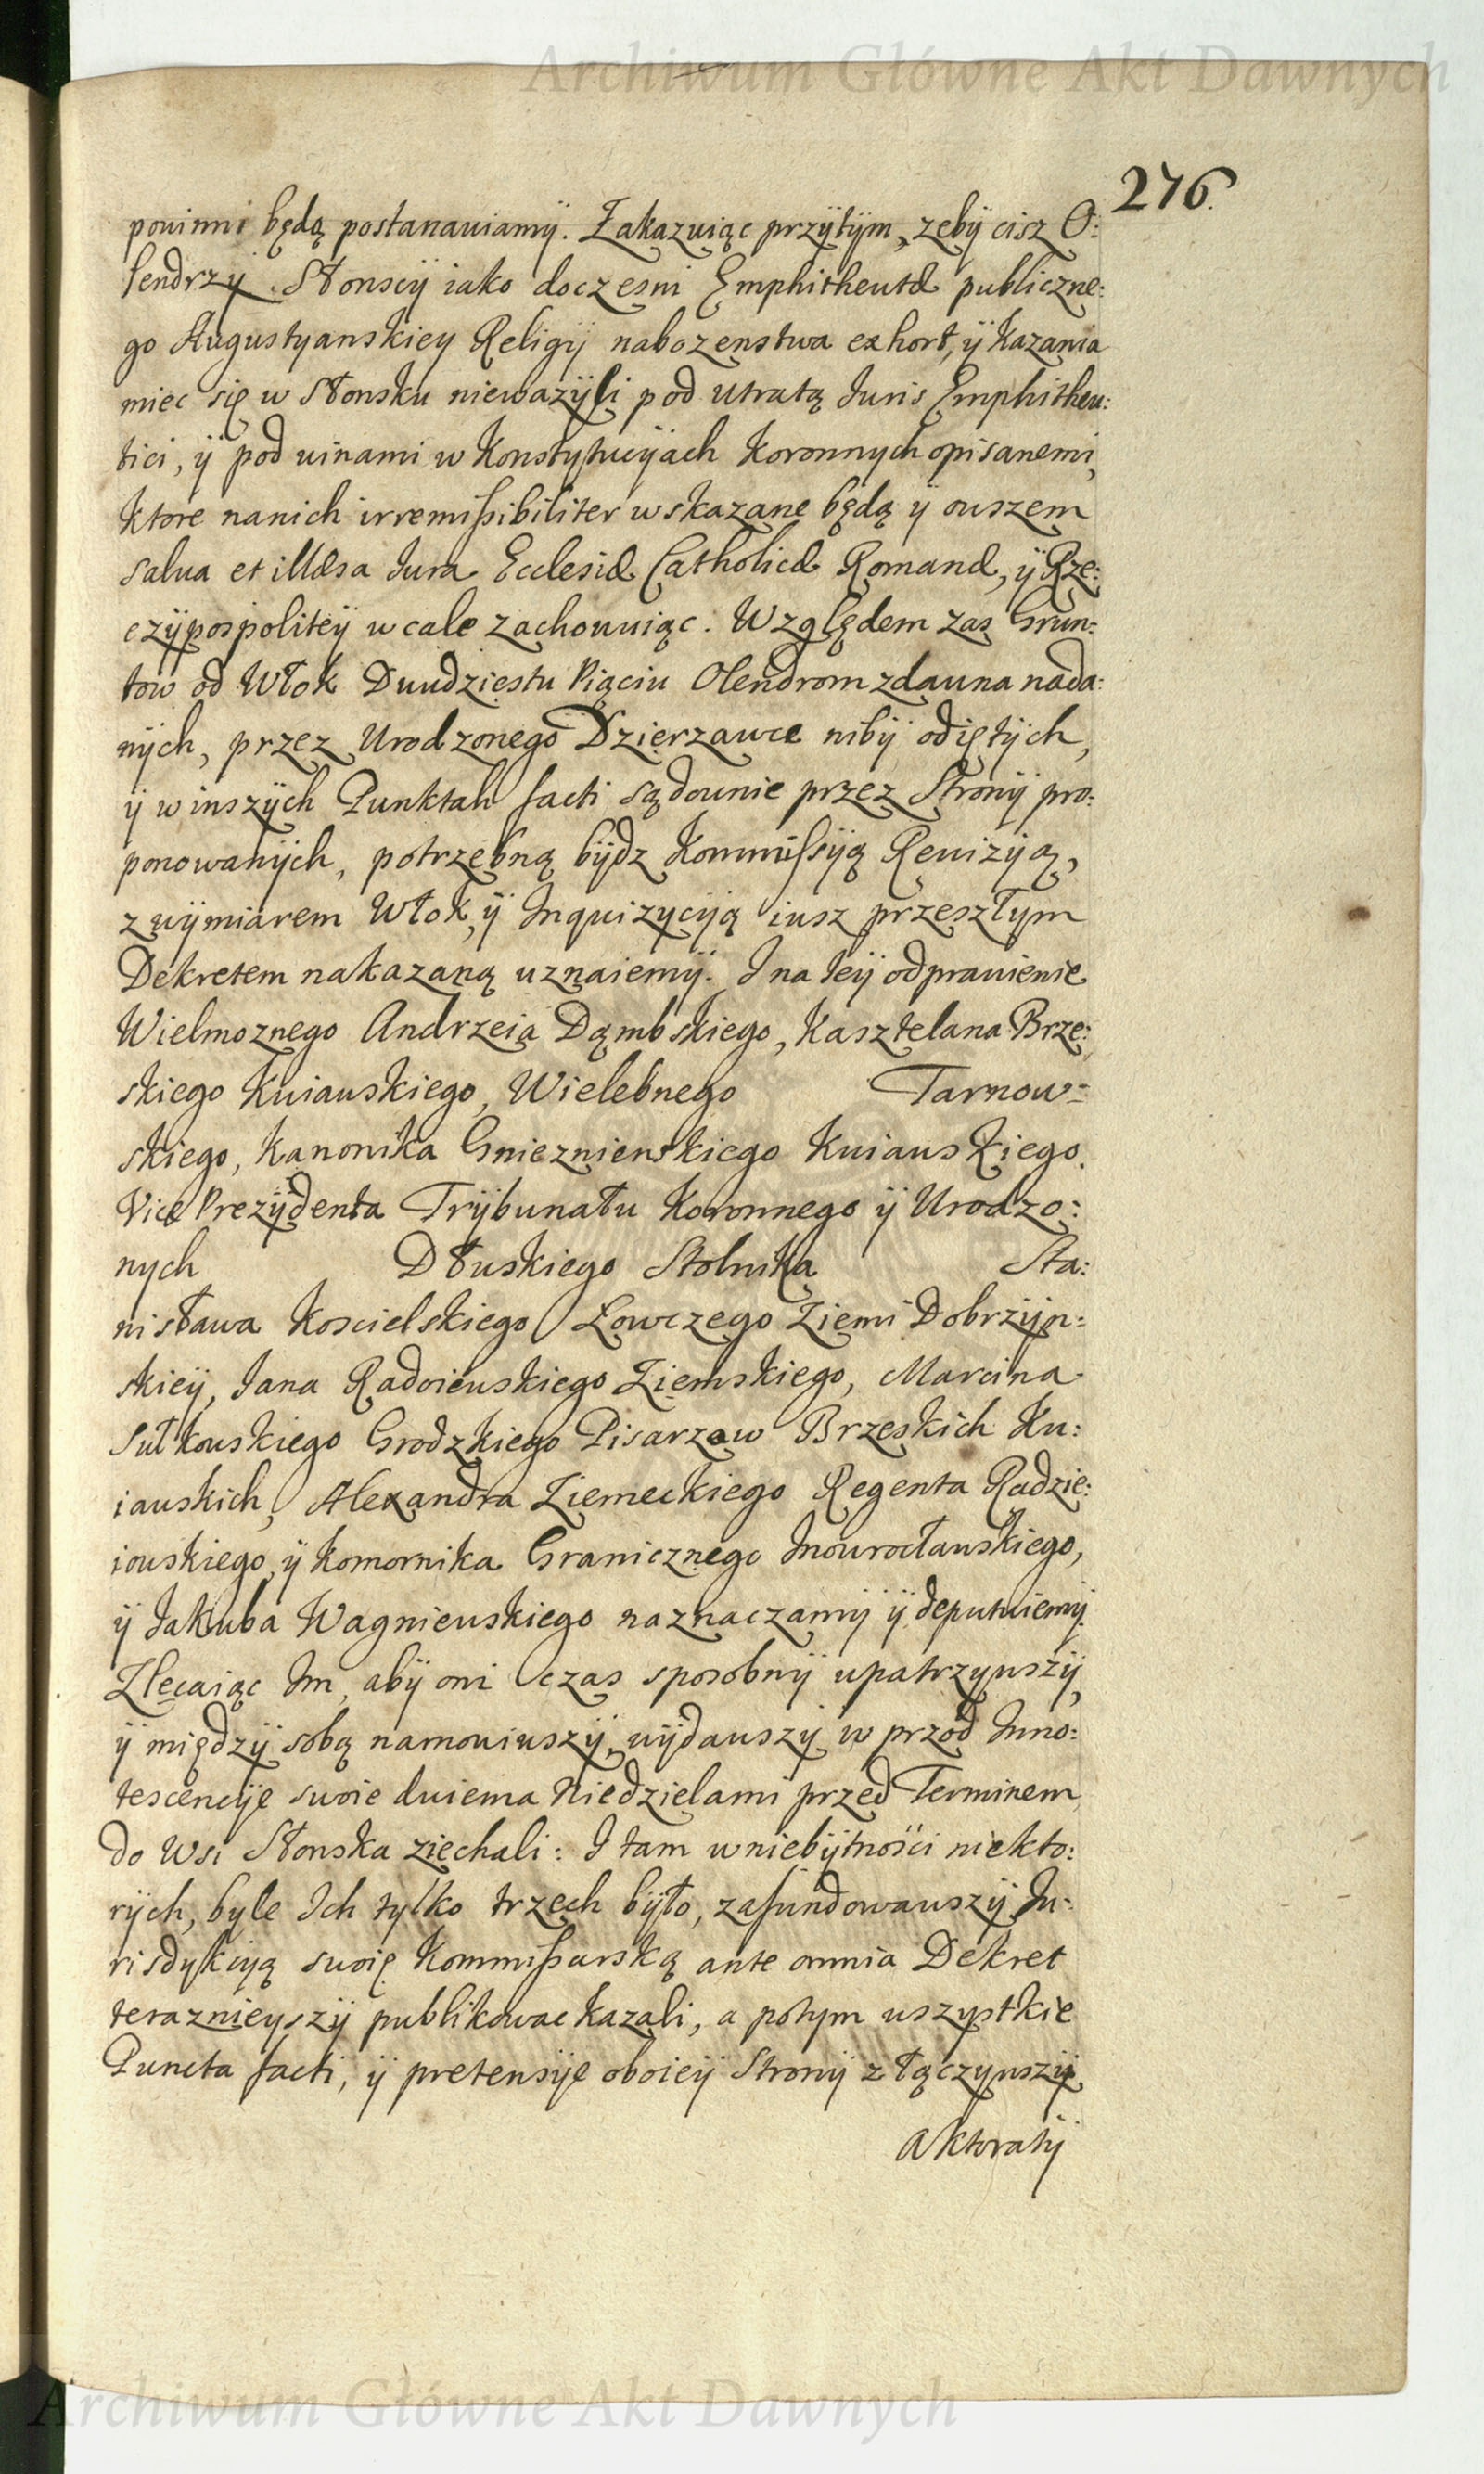 Archiwum Główne Akt Dawnych
276.
powinni będą postanawiamÿ. Zakazuiąc przÿtÿm, zebÿ cisz O:
lendrzÿ Słonscÿ iako doczesni Emphitheutæ publiczne:
go Augustyanskiey Religÿ nabozenstwa exhort, ÿ Kazania
miec się w Słonsku niewazÿli pod utratą Juris Emphitheu:
tici, ÿ pod winami w Konstytucÿach Koronnych opisanemi,
ktore nanich irremissibiliter wskazane będą ÿ owszem
salva et illæsa Jura Ecclesiæ Catholicæ Romanæ, ÿ Rze:
czÿpospolitÿ wcale zachowuiąc. Względem zas Grun:
tow od Włok Dwudziestu Piąciu Olendrom zdawna nada:
nÿch, przez Urodzonego Dzierzawce nibÿ odiętÿch,
ÿ winszÿch Punktah facti sądownie przez Stronÿ pro:
ponowanÿch, potrzebną bÿdz Kommissÿą Rewizÿą,
zwÿmiarem Włok, ÿ Inquizycÿą iusz przeszłym
Dekretem nakazaną uznaiemÿ. I na teÿ odprawienie
Wielmoznego Andrzeia Dąmbskiego, Kasztelana Brze:
skiego Kuiawskiego, Wielebnego Tarnow=
skiego, Kanonika Gnieznienskiego Kuiawskiego.
Vice Prezÿdenta Trÿbunału Koronnego ÿ Urodzo:
nych Dłuskiego Stolnika Sta:
nisława Koscielskiego Łowczego Ziemi Dobrzÿn:
skieÿ, Jana Radoiewskiego Ziemskiego, Marcina
Sułkowskiego Grodzkiego Pisarzow Brzeskich Ku:
iawskich, Alexandra Ziemeckiego Regenta Radzie:
iowskiego, ÿ Komornika Granicznego Inowrocławskiego,
ÿ Jakuba Wagniewskiego naznaczamÿ ÿ deputuiemÿ.
Zlecaiąc Im, abÿ oni czas sposobnÿ upatrzywszÿ,
ÿ międzÿ sobą namowiwszÿ, wÿdawszÿ w przod Inno:
tescencÿe swoie dwiema Niedzielami przed Terminem
do Wsi Słonska ziechali: I tam wniebÿtnosci niekto:
rÿch, byle Ich tylko trzech bÿło, zafundowawszÿ Ju:
risdykcÿą swoię Kommissarską ante omnia Dekret
teraznieyszÿ publikowac kazali, a potym wszystkie
Puncta facti, ÿ pretensÿe oboieÿ Stronÿ złączywszÿ
Aktoratÿ
Archiwum Główne Akt Dawnych